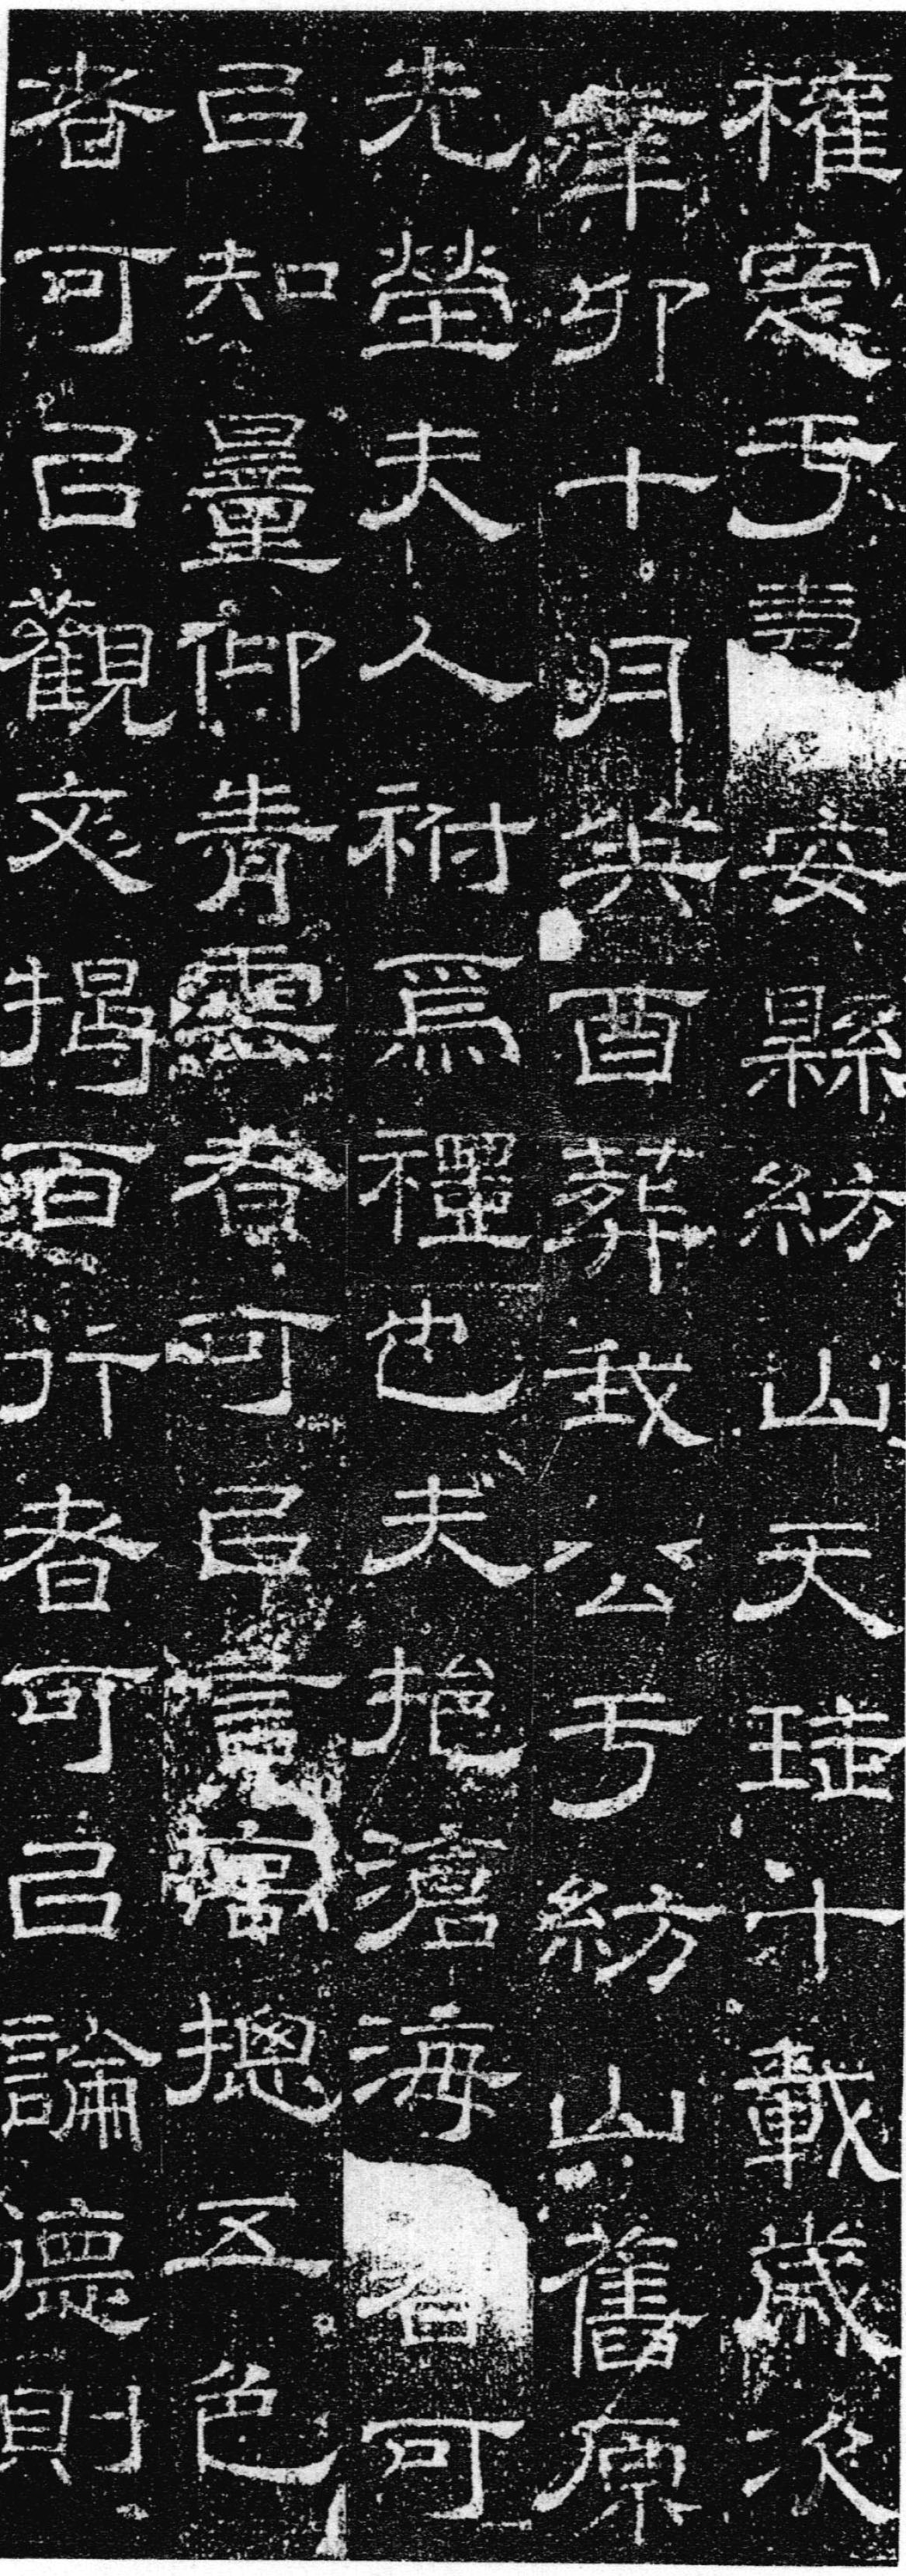 權窆于壽安縣紡山天珤十載歲次
辛卯十月癸酉葬我公于紡山舊原
先塋夫人祔焉禮也夫挹滄海者可
㠯知量仰青雲者可㠯言揔五色
者可㠯觀文揭百行者可㠯論德則